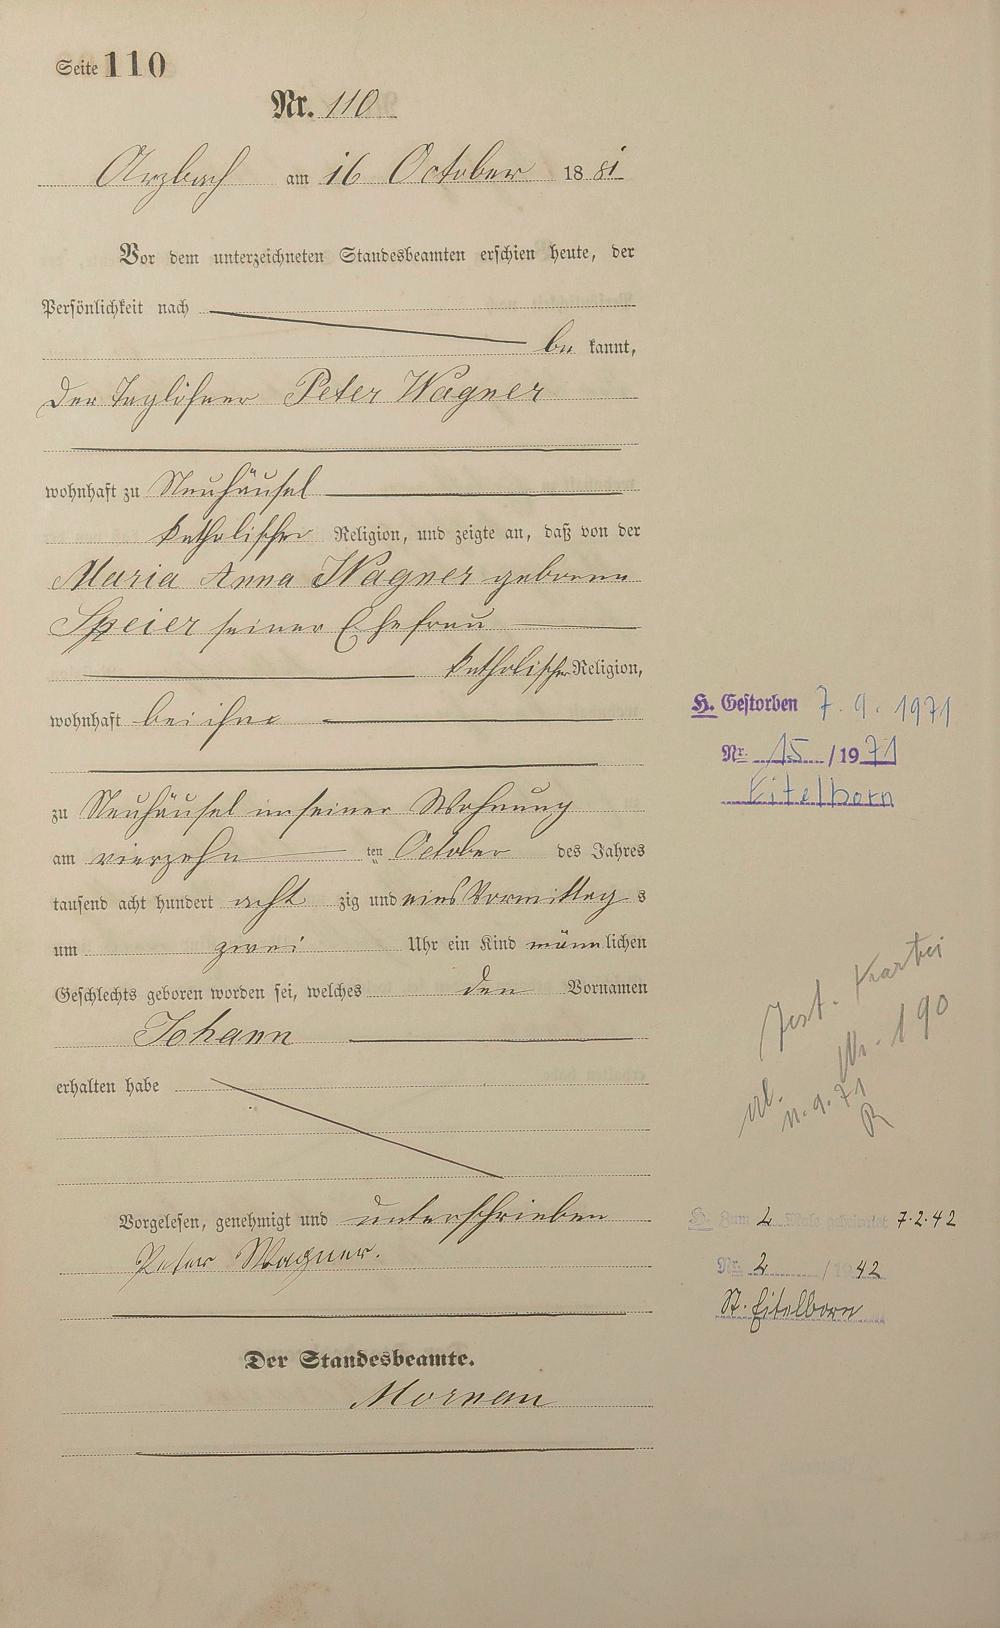 Seite 110
Nr. 110
Arzbach am 16 October 1881
Vor dem unterzeichneten Standesbeamten erschien heute, der
Persönlichkeit nach
be kannt,
der Taglöhner Peter Wagner
wohnhaft zu Neuhäusel
katholischer Religion, und zeigte an, daß von der
Maria Anna Wagner geborene
Speier seiner Ehefrau
katholischer Religion,
wohnhaft bei ihm
zu Neuhäusel in seiner Wohnung
am vierzehn ten October des Jahres
tausend acht hundert acht zig und eins Vormittag s
um zwei Uhr ein Kind männlichen
Geschlechts geboren worden sei, welches den Vornamen
Johann
erhalten habe
Vorgelesen, genehmigt und unterschrieben
Peter Wagner.
Der Standesbeamte.
Mornau
H. Gestorben 7.9.1971
Nr. 15 / 1971
Eitelborn
Test. Kartei
Nr. 190
erl.
11.9.71
R
H. Zum 2 Male geheiratet 7.2.42
Nr. 2 / 1942
St. Eitelborn